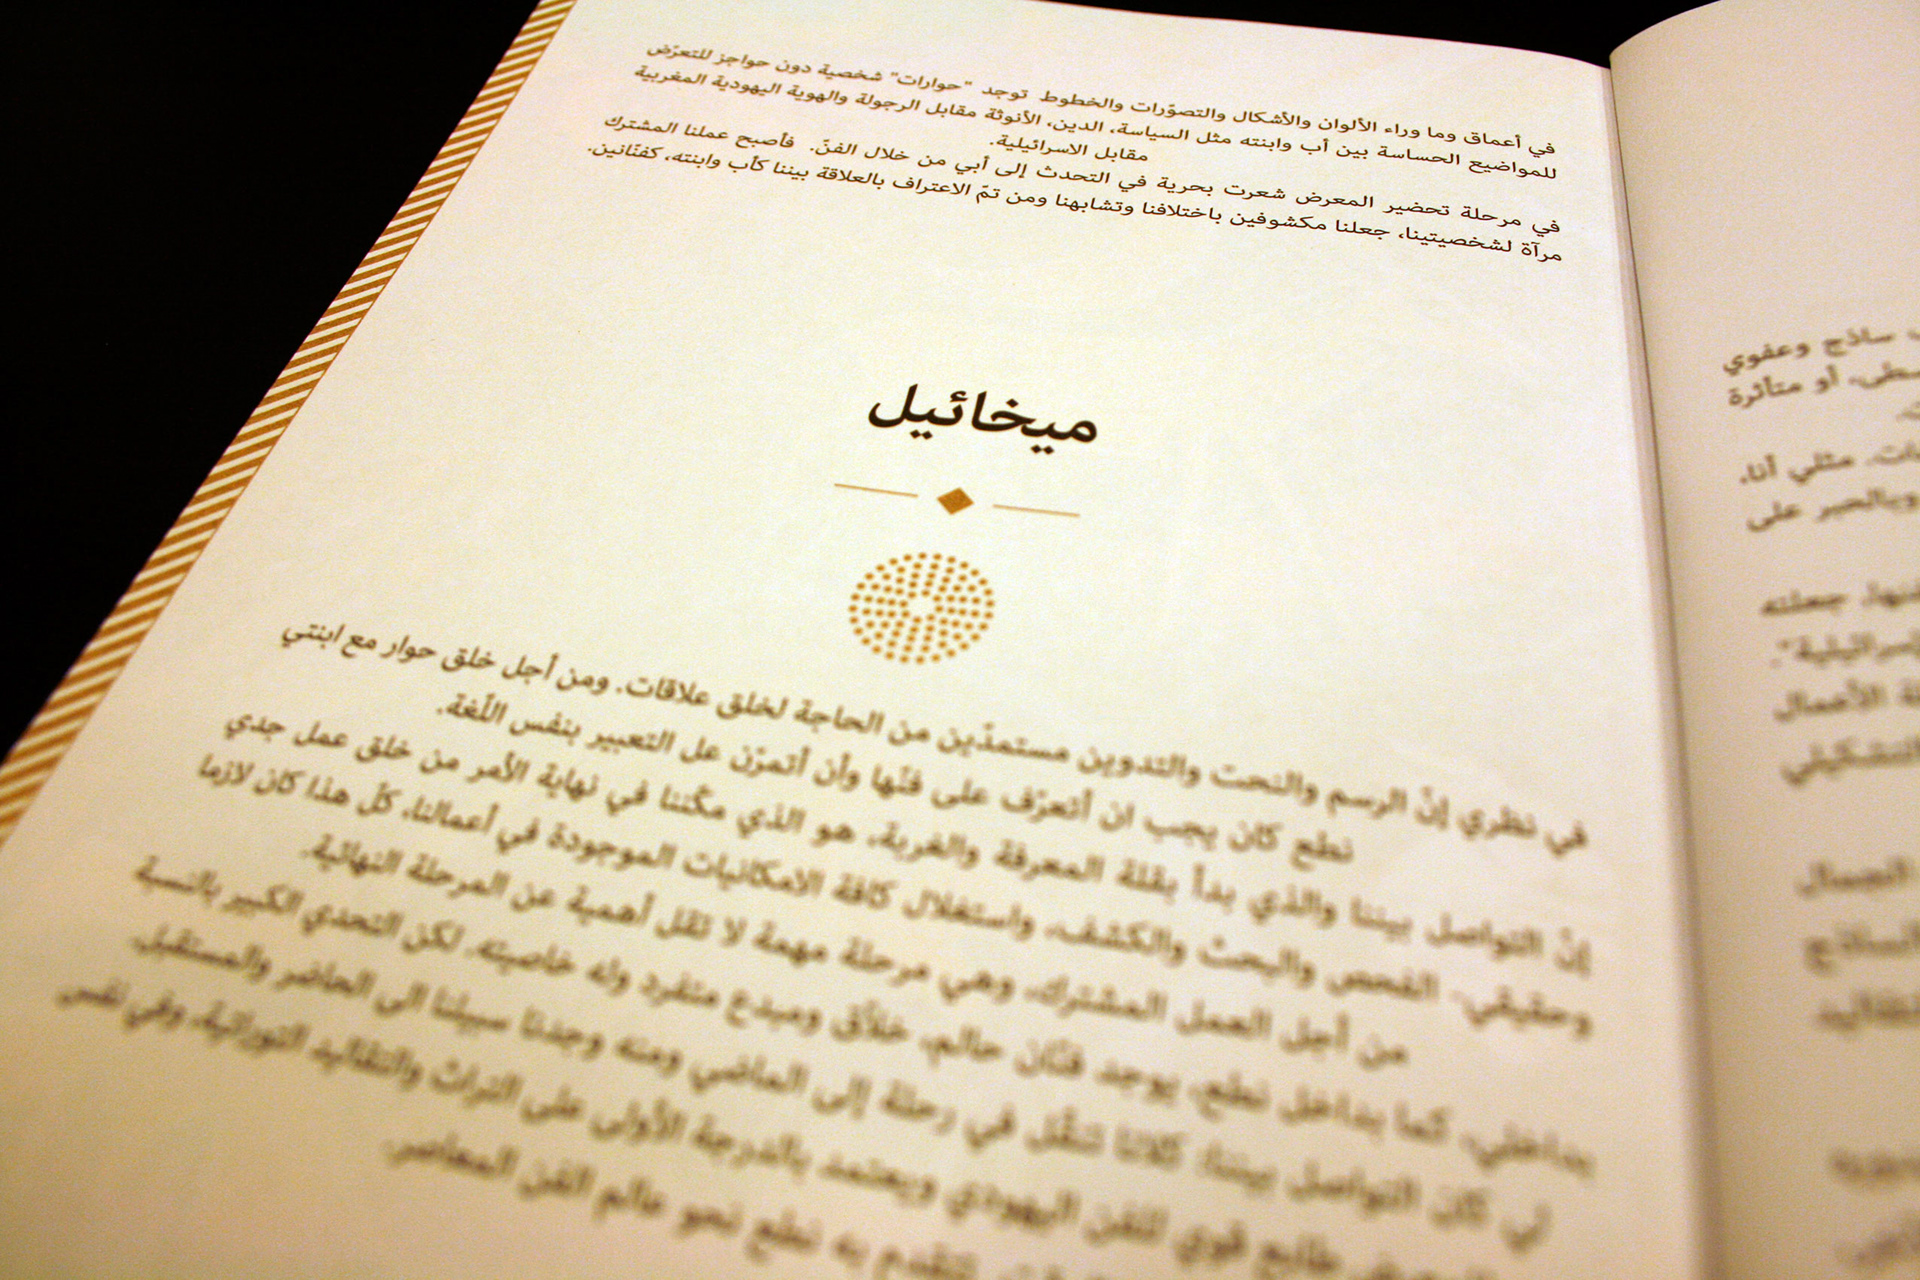 في أعماق وما وراء الألوان والأشكال والتصوّرات والخطوط توجد "حوارات" شخصية دون حواجز للتعرّض
للمواضيع الحساسة بين أب وابنته مثل السياسة، الدين، الأنوثة مقابل الرجولة والهوية اليهودية المغربية
مقابل الاسرائيلية.
في مرحلة تحضير المعرض شعرت بحرية في التحدث إلى أبي من خلال الفنّ. فأصبح عملنا المشترك
مرآة لشخصيتينا، جعلنا مكشوفين باختلافنا وتشابهنا ومن تمّ الاعتراف بالعلاقة بيننا كأب وابنته، كفنّانين.
ميخائيل
في نظري إنّ الرسم والنحت والتدوين مستمدّين من الحاجة لخلق علاقات. ومن أجل خلق حوار مع ابنتي
نطع كان يجب ان أتعرّف على فنّها وأن أتمرّن عل التعبير بنفس اللّغة.
إنّ التواصل بيننا والذي بدأ بقلة المعرفة والغربة، هو الذي مكّننا في نهاية الأمر من خلق عمل جدي
وحقيقي- الفحص والبحث والكشف، واستغلال كافة الامكانيات الموجودة في أعمالنا، كلّ هذا كان لازما
من أجل العمل المشترك، وهي مرحلة مهمة لا تقل أهمية عن المرحلة النهائية.
بداخلي، كما بداخل نطع، يوجد فنّان حالم، خلاّق ومبدع متفرد وله خاصيته. لكن التحدي الكبير بالنسبة
لي كان التواصل بيننا: كلانا تنقّل في رحلة إلى الماضي ومنه وجدنا سبيلنا الى الحاضر والمستقبل.
طابع قوي للفن اليهودي ويعتمد بالدرجة الأولى على التراث والتقاليد التوراتية، وفي نفس
تتقدم به نطع نحو عالم الفن المعاصر.
ساذج وعفوي
أو متأثرة
مثلي أنا،
وبالحبر على
جعلته
الأعمال
التشكيلي
الجمال
الساذج